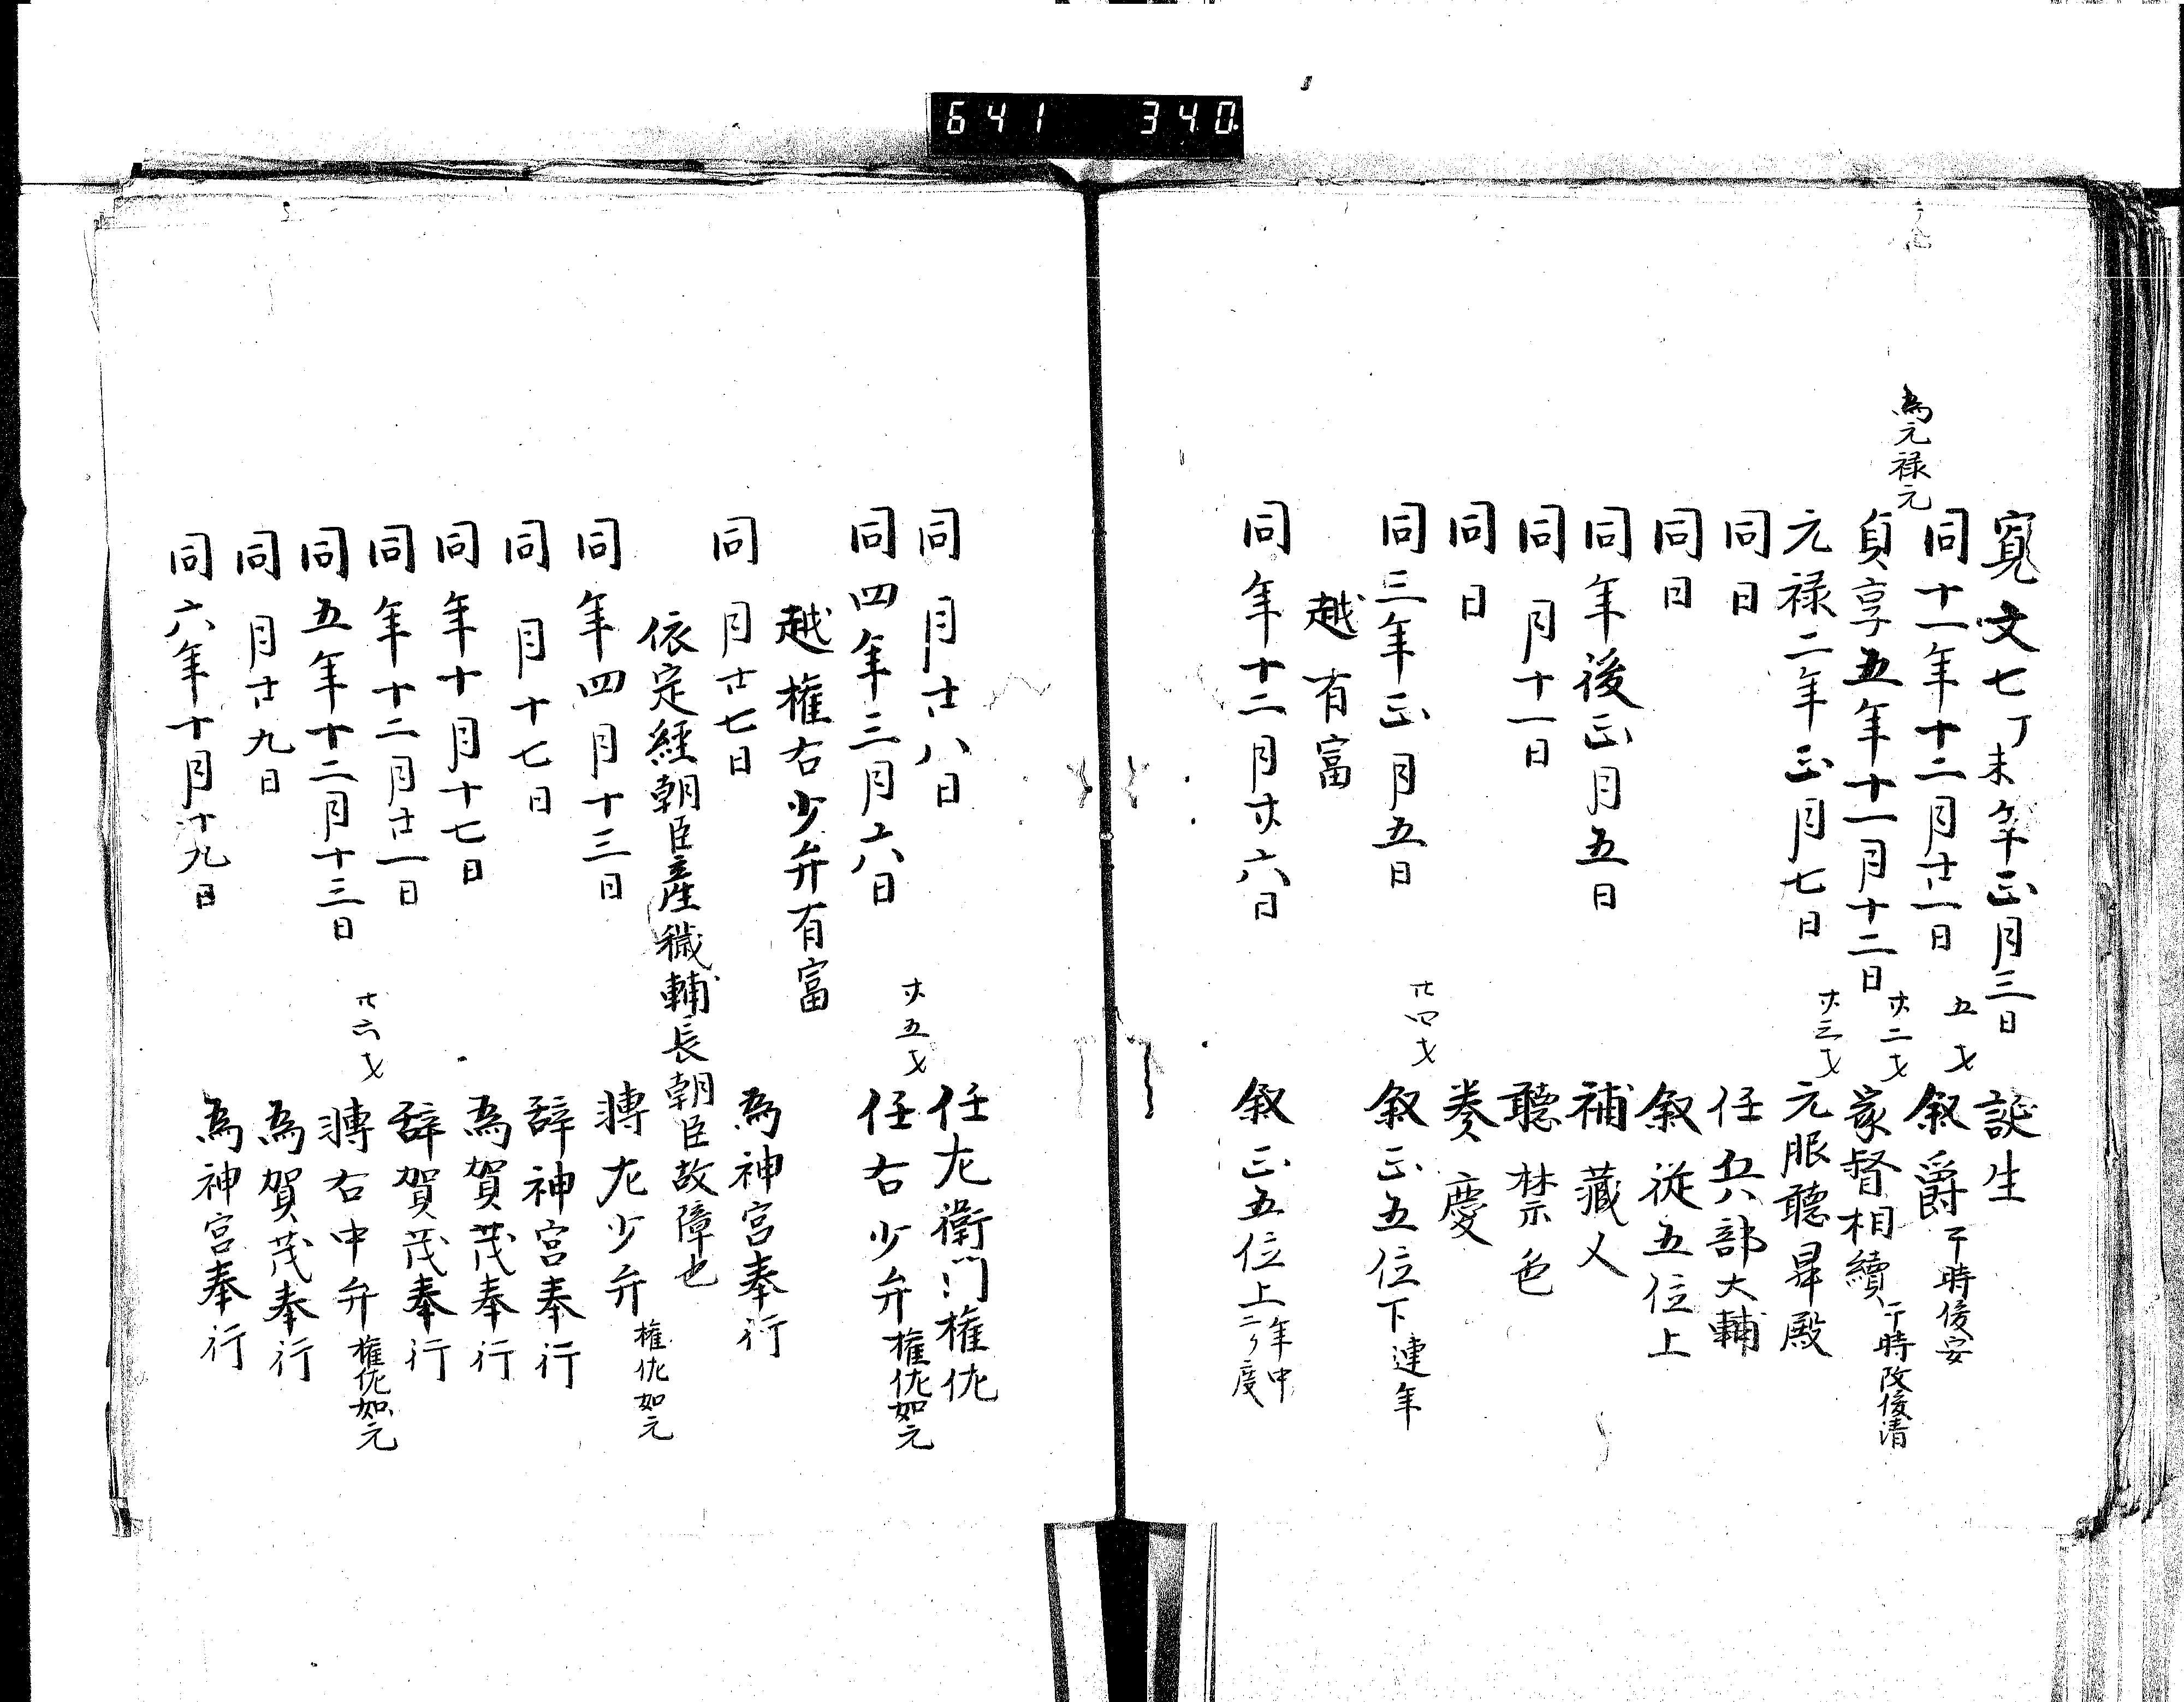 641 340
寛文七丁未年正月三日 誕生
同十一年十二月廿一日 五才 叙爵 于時俊安
為元禄元
貞享五年十一月十二日 廿二才 家督相續 于時改俊清
元禄二年正月七日 廿三才 元服聴昇殿
同日 任兵部大輔
同日 叙従五位上
同年後正月五日 補蔵人
同月十一日 聴禁色
同日 奏慶
同三年正月五日 廿四才 叙正五位下 連年
越有富
同年十二月廿六日 叙正五位上 年中二ヶ度
同月廿八日 任左衛門権佐
同四年三月六日 廿五才 任右少弁 権佐如元
越権右少弁有富
同月廿七日 為神宮奉行
依定経朝臣産穢輔長朝臣故障也
同年四月十三日 轉左少弁 権佐如元
同月十七日 辞神宮奉行
同年十月十七日 為賀茂奉行
同年十二月廿一日 辞賀茂奉行
同五年十二月十三日 廿六才 轉右中弁 権佐如元
同月廿九日 為賀茂奉行
同六年十月十九日 為神宮奉行